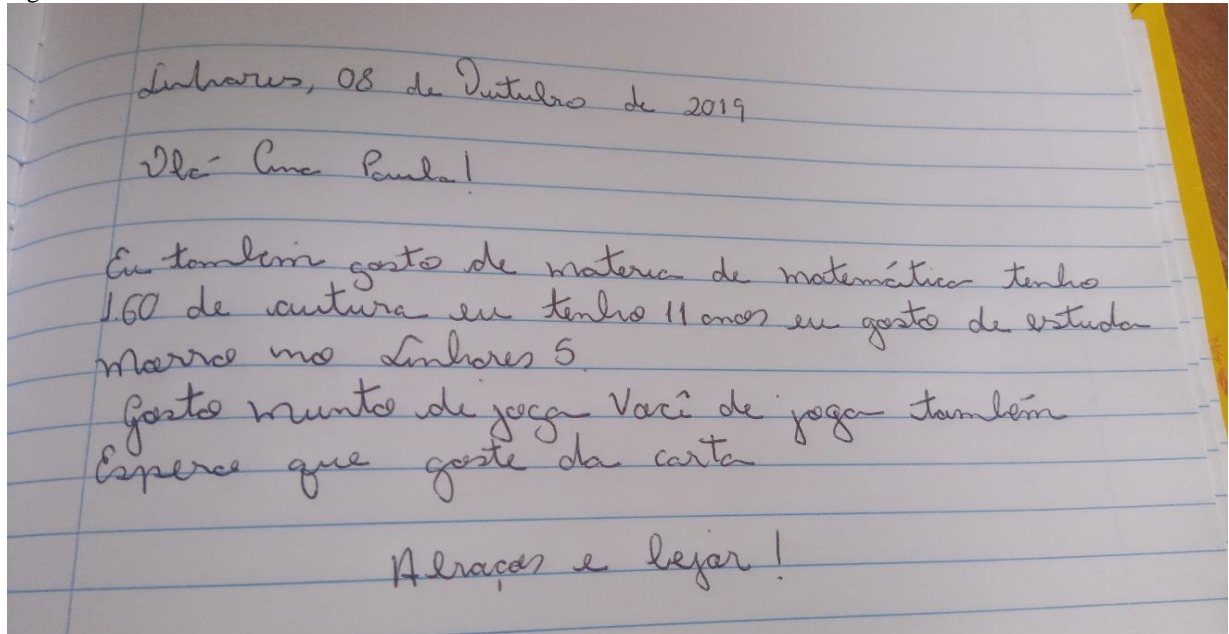 Linhares, 08 de Outubro de 2019
Olá Ana Paula!
Eu também gosto de materia de matemática tenho
1.60 de autura eu tenho 11 anos eu gosto de estuda
Morro no Linhares 5.
Gosto munto de joga Você de joga também
Espero que goste da carta
Abraços e bejos!